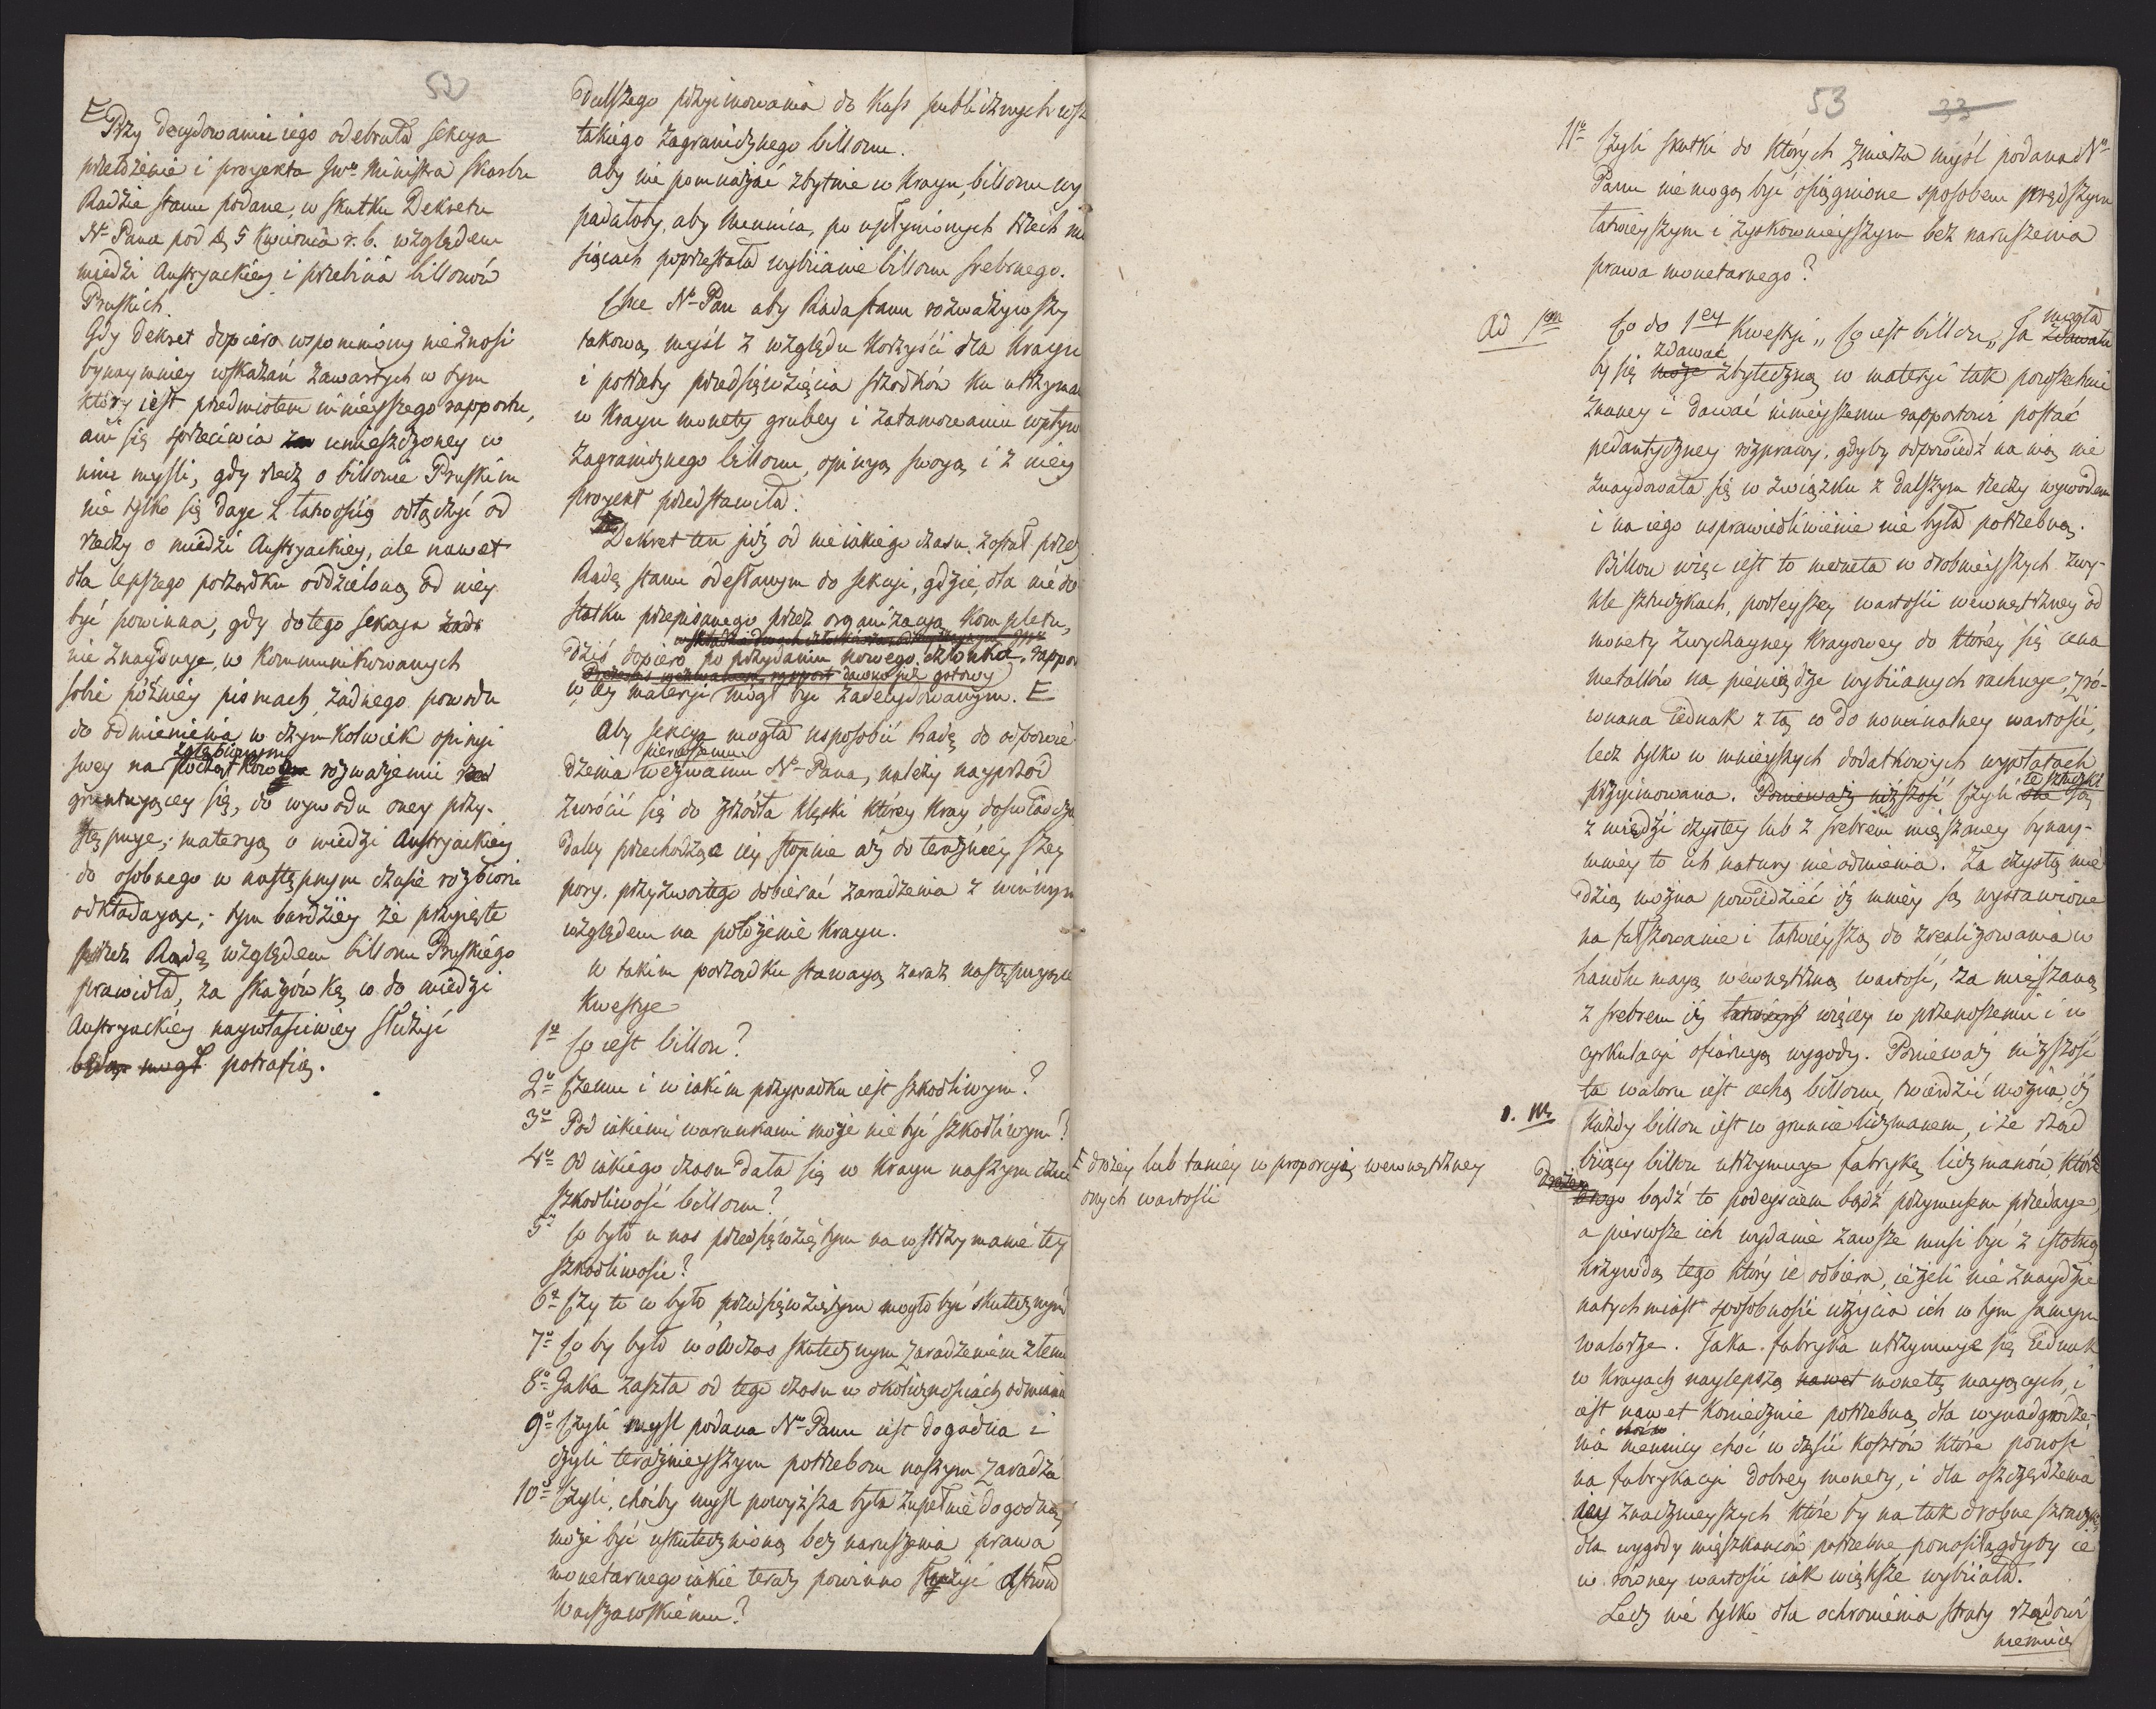 52
E Przy decydowaniu iego odebrała sekcya
przełożenie i proyekta JWo Ministra Skarbu
Radzie stanu podane, w skutku Dekretu
No Pana pod d. 5 Kwietnia r. b. względem
miedzi Austryackiey i przebicia billonów
Pruskich.
Gdy Dekret dopiero wspomniony nieznosi
bynaymniey wskazań zawartych w tym
który iest przedmiotem ninieyszego rapportu,
ani się sprzeciwia umieszczoney w
nim myśli, gdy rzecz o billonie Pruskim
nie tylko się daye z łatwością odłączyć od
rzeczy o miedzi Austryackiey, ale nawet
dla lepszego porządku oddzielną od niey
być powinna, gdy do tego sekcya
nie znayduye, w kommunikowanych
sobie późniey pismach, żadnego powodu
do odmienienia w czym kolwiek opinyi
zgłębionym
swey na początkowym rozważeniu
gruntuyącey się, do wywodu oney przy-
stępuye; materyą o miedzi Austryackiey
do osobnego w następnym czasie rozbioru
odkładayąc; tym bardziey że przyięte
przez Radę względem billonu Pruskiego
prawidła, za skazówkę co do miedzi
Austryackiey naywłaściwiey służyć
mogł potrafią.
Dalszego przyimowania do Kass publicznych wsz
takiego zagranicznego billonu.
Aby nie pomnażać zbytnie w Krayu, billonu wy
padałoby, aby Mennica, po upłynionych trzech mie
siącach poprzestała wybiianie billonu srebrnego.
Chce No Pan aby Rada stanu rozważywszy
takową myśl z względu korzyści dla Krayu
i potrzeby przedsięwzięcia środków ku utrzyman
w Krayu monety grubey i zatamowaniu wpływ
zagranicznego billonu, opinyą swoyą i z niey
proyekt przedstawiła:
Dekret ten już od nieiakiego czasu został przez
Radę stanu odesłanym do sekcyi, gdzie, dla niedo
statku przepisanego przez organizacyą kompletu,
dziś dopiero po przydaniu nowego członka, rappor
rapport dawno już gotowy
w tey materyi mógł być zadecydowanym. E
Aby sekcya mogła usposobić Radę do odpowie
pierwszemu
dzenia wezwaniu No Pana, należy nayprzód
zwrócić się do źródła klęski którey Kray doświadcza
daley przechodząc iey stopnie aż do teraźnieyszey
pory, przyzwoitego dobierać zaradzenia z winnym
względem na położenie Krayu.
w takim porządku stawaią zaraz następuyące
Kwestye
1o Co iest billon?
2o Czemu i w iakim przypadku iest szkodliwym?
3o Pod iakiemi warunkami może nie być szkodliwym?
4o Od iakiego czasu dała się w Krayu naszym czuć
szkodliwość billonu?
5o Co było u nas przedsięwziętym na wstrzymanie tey
szkodliwości?
6o Czy to co było przedsięwziętym mogło być skutecznym
7o Co by było wówczas skutecznym zaradzeniem złemu
8o Jaka zaszła od tego czasu w okolicznościach odmiana
9o Czyli myśl podana No Panu iest dogodna i
czyli teraźnieyszym potrzebom naszym zaradza
10o Czyli, choćby myśl powyższa była zupełnie dogodną
może być uskutecznioną bez naruszenia prawa
monetarnego iakie teraz powinno służyć Xstwu
Warszawskiemu?
53
33
11o Czyli skutki do których zmierza myśl podana No
Panu nie mogą być osiągnione sposobem prędszym
łatwieyszym i zyskownieyszym bez naruszenia
prawa monetarnego?
Ad 1m
Co do 1ey Kwestyi „Co iest billon„ Ta zdawała
mogła
zdawać
by się może zbyteczną w materyi tak powszechnie
znaney i dawać ninieyszemu rapportowi postać
pedantyczney rozprawy, gdyby odpowiedź na nią nie
znaydowała się w związku z dalszym rzeczy wywodem
i na iego usprawiedliwienie nie była potrzebną.
Billon więc iest to moneta w drobnieyszych zwy-
kle sztuczkach, podleyszey wartości wewnętrzney od
monety zwyczayney Krayowey do którey się cena
metallów na pieniądze wybiianych rachuye, zró-
wnana iednak z tą co do nominalney wartości,
lecz tylko w mnieyszych dodatkowych wypłatach
te sztuczki
przyimowana. Ponieważ niższość Czyli są
z miedzi czystey lub z srebrem mięszaney bynay-
mniey to ich natury nie odmienia. Za czystą mie
dzią można powiedzieć iż mniey są wystawione
na fałszowanie i łatwieyszą do zrealizowania w
handlu mayą wewnętrzną wartość, za mięszaną
z srebrem iż więcey w przenoszeniu i w
cyrkulacyi ofiaruyą wygody. Ponieważ niższość
ta waloru iest cechą billonu, twierdzić można, iż
każdy billon iest w gruncie liczmanem, i że rząd
biiący billon utrzymuye fabrykę liczmanów, które
E drożey lub taniey w proporcyi wewnętrzney
onych wartości
drożey
drogo bądź to podeyściem bądź przymusem przedaye,
a pierwsze ich wydanie zawsze musi być z istotną
krzywdą tego który ie odbiera, ieżeli nie znaydzie
natychmiast sposobności użycia ich w tym samym
walorze. Taka fabryka utrzymuye się iednak
w Krayach naylepszą nawet monetę mayących, i
iest nawet koniecznie potrzebną dla wynadgrodze-
nia mennicy choć w części kosztów które ponosi
na fabrykacyi dobrey monety, i dla oszczędzenia
iey znacznieyszych które by na tak drobne sztuczki
dla wygody mięszkańców potrzebne ponosiła, gdyby ie
w równey wartości iak większe wybiiała.
Lecz nie tylko dla ochronienia straty rządowi
mennicę